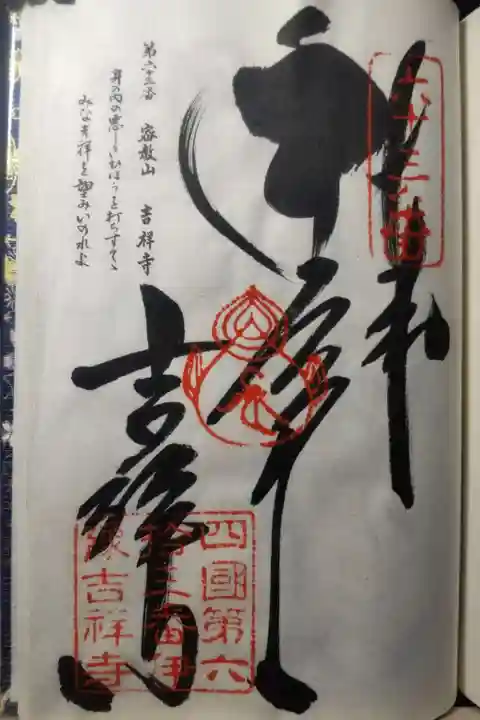 六十三番
奉納
吉祥寺
第六十三番 密教山 吉祥寺
身の内の悪しきひはうを打ちすてゝ
みな吉祥を望みいのれよ
四國第六
拾三番伊
豫吉祥寺